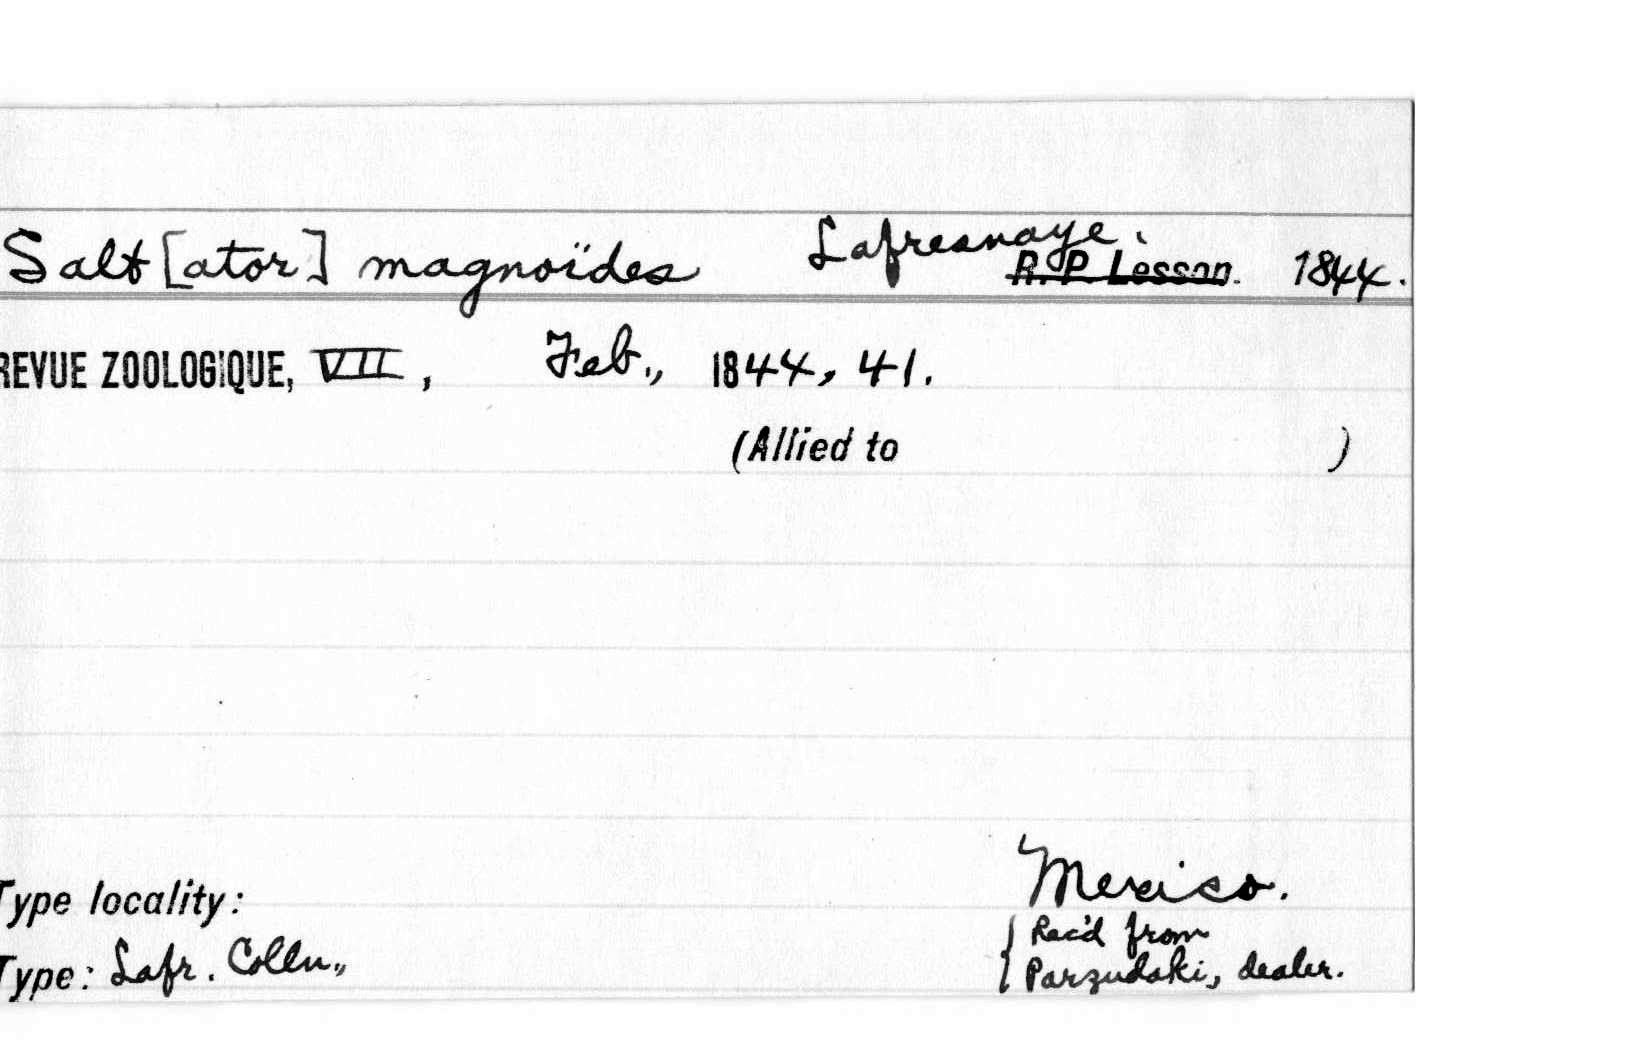 Salt[ator] magnoïdes Lafresnaye. R. P. Lesson. 1844.
REVUE ZOOLOGIQUE, VII, Feb., 1844, 41.
(Allied to )
Mexico.
Type locality:
{ Rec'd from
Type: Lafr. Colln., Parzudaki, dealer.